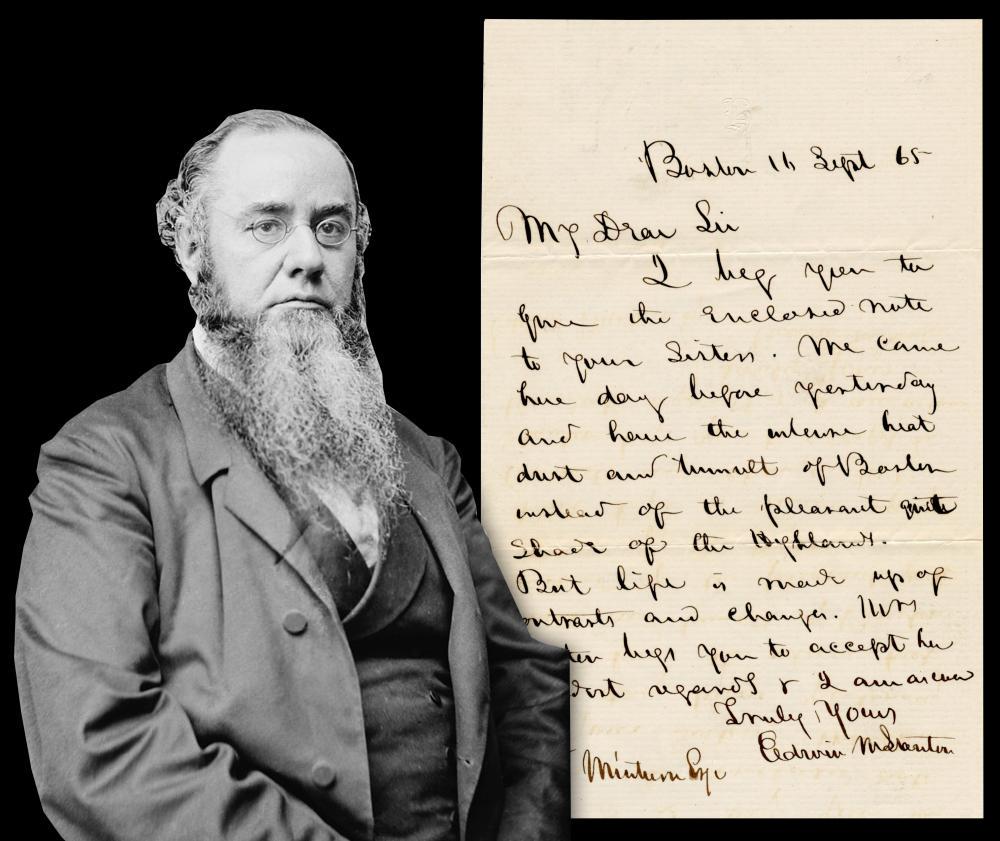 Boston 11 Sept 65
My Dear Sir
I beg you to
give the enclosed note
to your Sisters. We came
here day before yesterday
and have the intense heat
dust and tumult of Boston
instead of the pleasant quiet
shade of the Highlands.
But life is made up of
ontrasts and changes. Mrs
ton begs you to accept her
regards & I am as ever
Truly Yours
Edwin M Stanton
Minturn Esqr